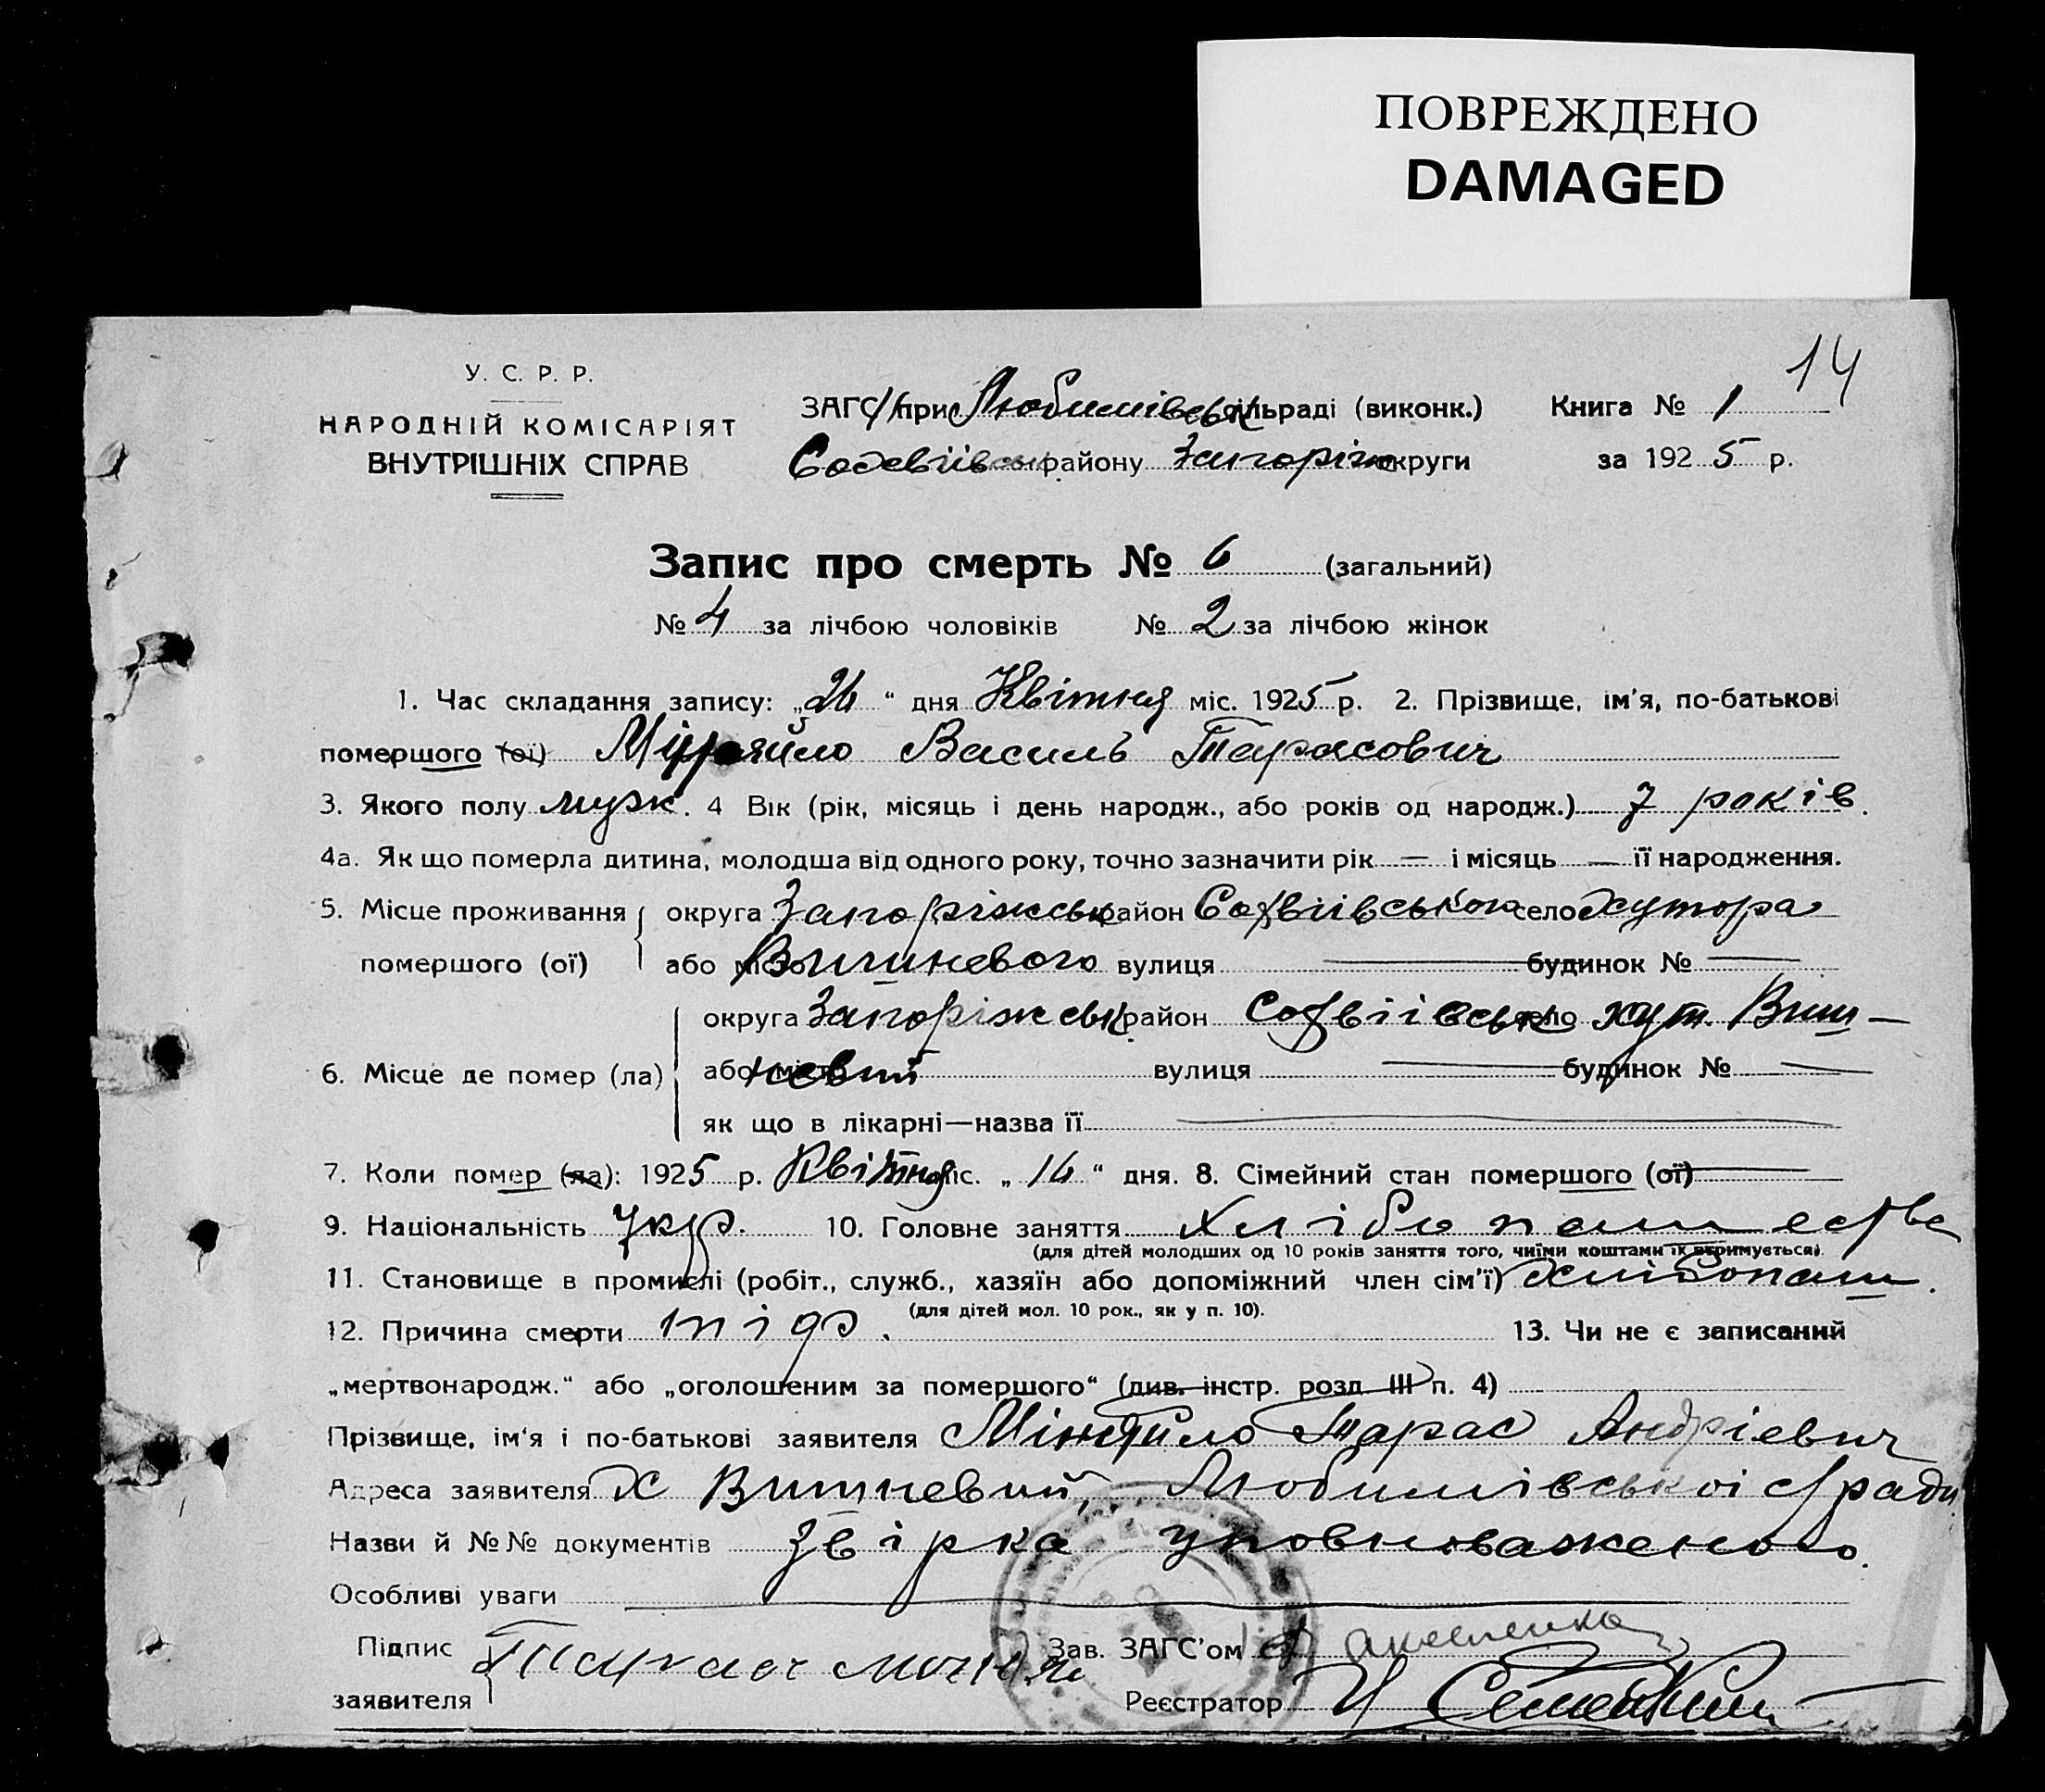 ПОВРЕЖДЕНО
DAMAGED
14
У. С. Р. Р.
НАРОДНІЙ КОМІСАРІЯТ
ВНУТРІШНІХ СПРАВ
ЗАГС при Любимівськ сільраді (виконк.) Книга № 1
району Запоріж округи за 1925 р.
Запис про смерть № 6 (загальний)
№ 4 за лічбою чоловіків № 2 за лічбою жінок
1. Час складання запису: „24“ дня Квітня міс. 1925 р. 2. Прізвище, ім'я, по-батькові
помершого (ої) Василь Тарасович
3. Якого полу муж. 4 Вік (рік, місяць і день народж., або років од народж.) 7 років.
4а. Як що померла дитина, молодша від одного року, точно зазначити рік — і місяць — її народження.
5. Місце проживання округа Запоріжськ район Софвіївського село хутора
помершого (ої) або місто Вишневого вулиця — будинок № —
округа Запоріжськ район Софвіївськ село хут. Виш-
6. Місце де помер (ла) або місто невий вулиця — будинок № —
як що в лікарні—назва її —
7. Коли помер (ла): 1925 р. Квітня міс. „16“ дня. 8. Сімейний стан помершого (ої) —
9. Національність укр. 10. Головне заняття хлібопашества
(для дітей молодших од 10 років заняття того, чиїми коштами їх втримується).
11. Становище в промислі (робіт., служб., хазяїн або допоміжний член сім'ї) хлібопаш.
(для дітей мол. 10 рок., як у п. 10).
12. Причина смерти 13. Чи не є записаний
„мертвонародж.“ або „оголошеним за помершого“ (див. інстр. розд. III п. 4)
Прізвище, ім'я і по-батькові заявителя Тарас Андрієвич
Адреса заявителя х Вишневий, Любимівської с/ради
Назви й №№ документів звірка уповноваженого.
Особливі уваги —
Підпис Зав. ЗАГС'ом
заявителя Реєстратор